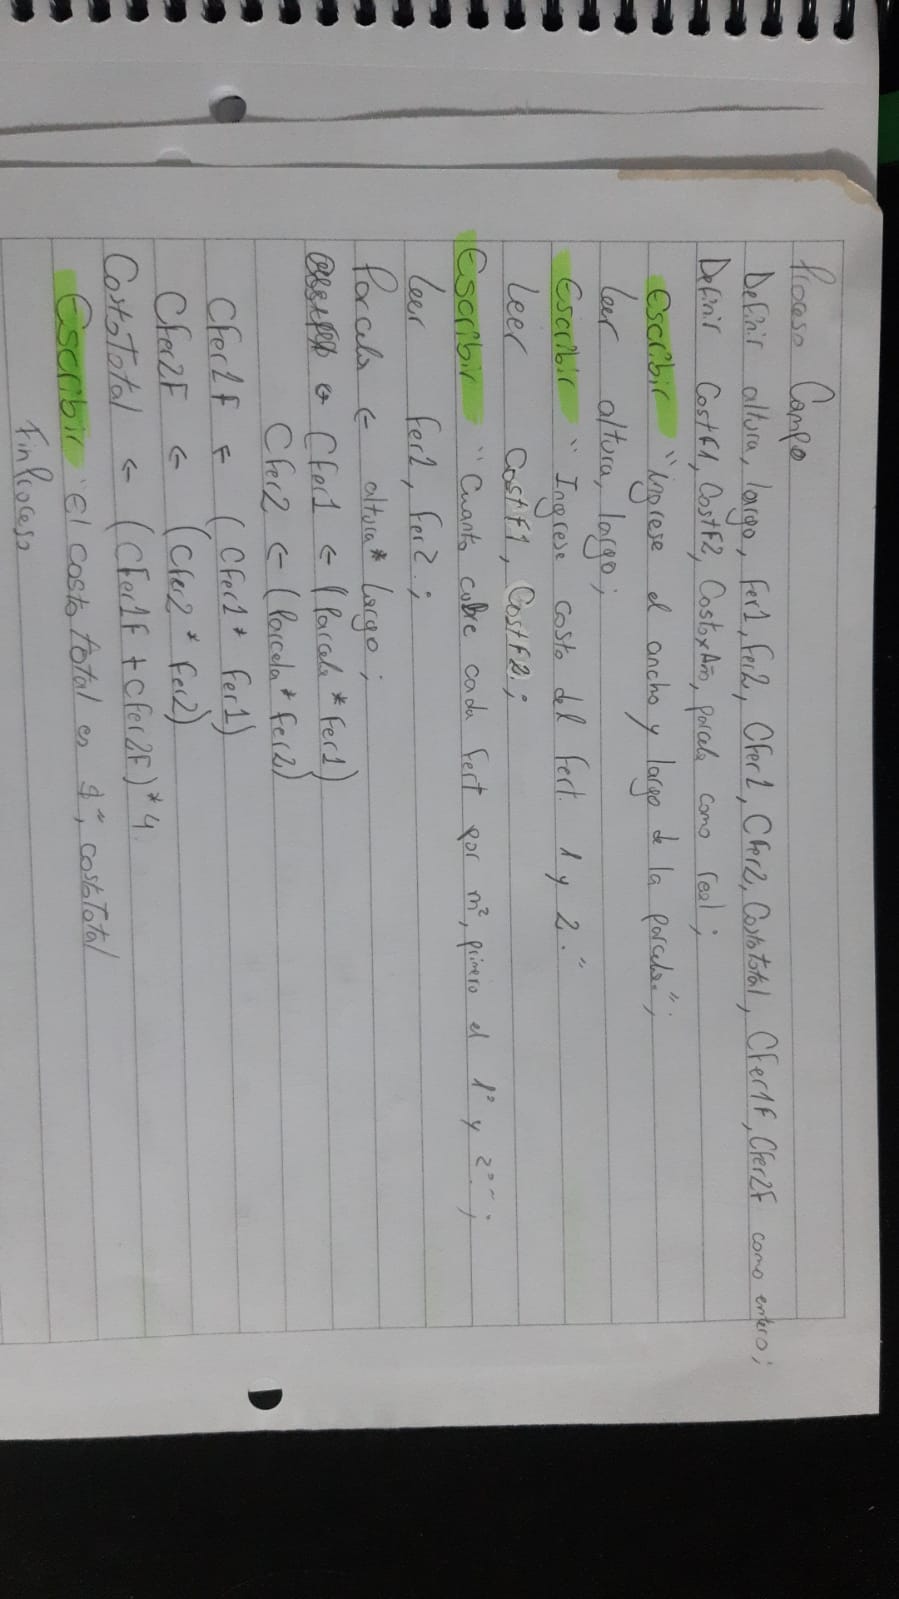 Proceso Campo
Definir altura, largo, Fer1, Fer2, CFer1, CFer2, Costototal, CFer1F, CFer2F como entero;
Definir CostF1, CostF2, CostoxAño, parcela como real;
Escribir "Ingrese el ancho y largo de la parcela";
Leer altura, largo;
Escribir "Ingrese costo del fert. 1 y 2."
Leer CostF1, CostF2;
Escribir "Cuanto cubre cada fert por m², primero el 1° y 2°";
Leer fer1, fer2;
Parcela ← altura * Largo;
CFer1 ← (Parcela * Fer1)
CFer2 ← (Parcela * Fer2)
CFer1F ← (CFer1 * Fer1)
CFer2F ← (CFer2 * Fer2)
CostoTotal ← (CFer1F + CFer2F) * 4
Escribir "El costo total es $", costoTotal
FinProceso